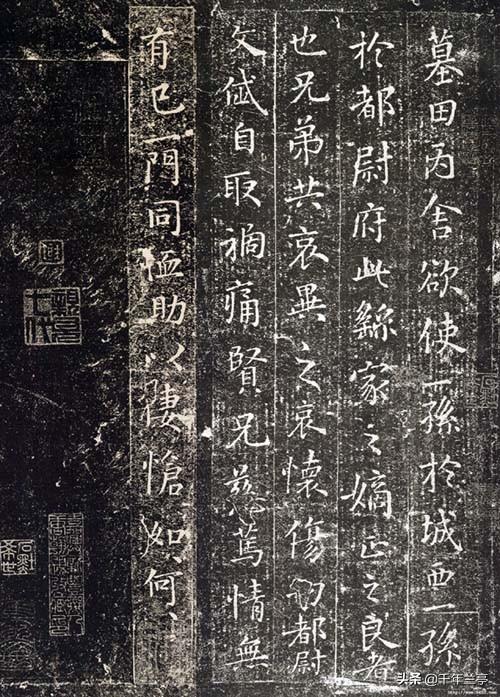 墓田丙舍欲使一孫於城西一孫
於都尉府此繇家之嫡正之良者
也兄弟共哀異之哀懷傷切都尉
文岱自取禍痛賢兄慈篤情無
有已一門同恤助以悽愴如何〻
头条 @千年兰亭